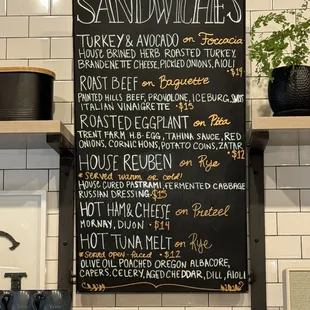 SANDWICHES
TURKEY & AVOCADO on Foccacia
HOUSE BRINED HERB ROASTED TURKEY,
BRANDENETTE CHEESE, PICKLED ONIONS, AIOLI
•$14
ROAST BEEF on Baguette
PAINTED HILLS BEEF, PROVOLONE, ICEBURG, SWEET
ITALIAN VINAIGRETTE •$15
ROASTED EGGPLANT on Pita
TRENT FARM H.B. EGG, TAHINA SAUCE, RED
ONIONS, CORNICHONS, POTATO COINS, ZATAR
•$12
HOUSE REUBEN on Rye
*Served warm or cold!
HOUSE CURED PASTRAMI, FERMENTED CABBAGE
RUSSIAN DRESSING •$15
HOT HAM & CHEESE on Pretzel
MORNAY, DIJON •$14
HOT TUNA MELT on Rye
*Served open-faced •$12
OLIVE OIL POACHED OREGON ALBACORE,
CAPERS, CELERY, AGED CHEDDAR, DILL, AIOLI